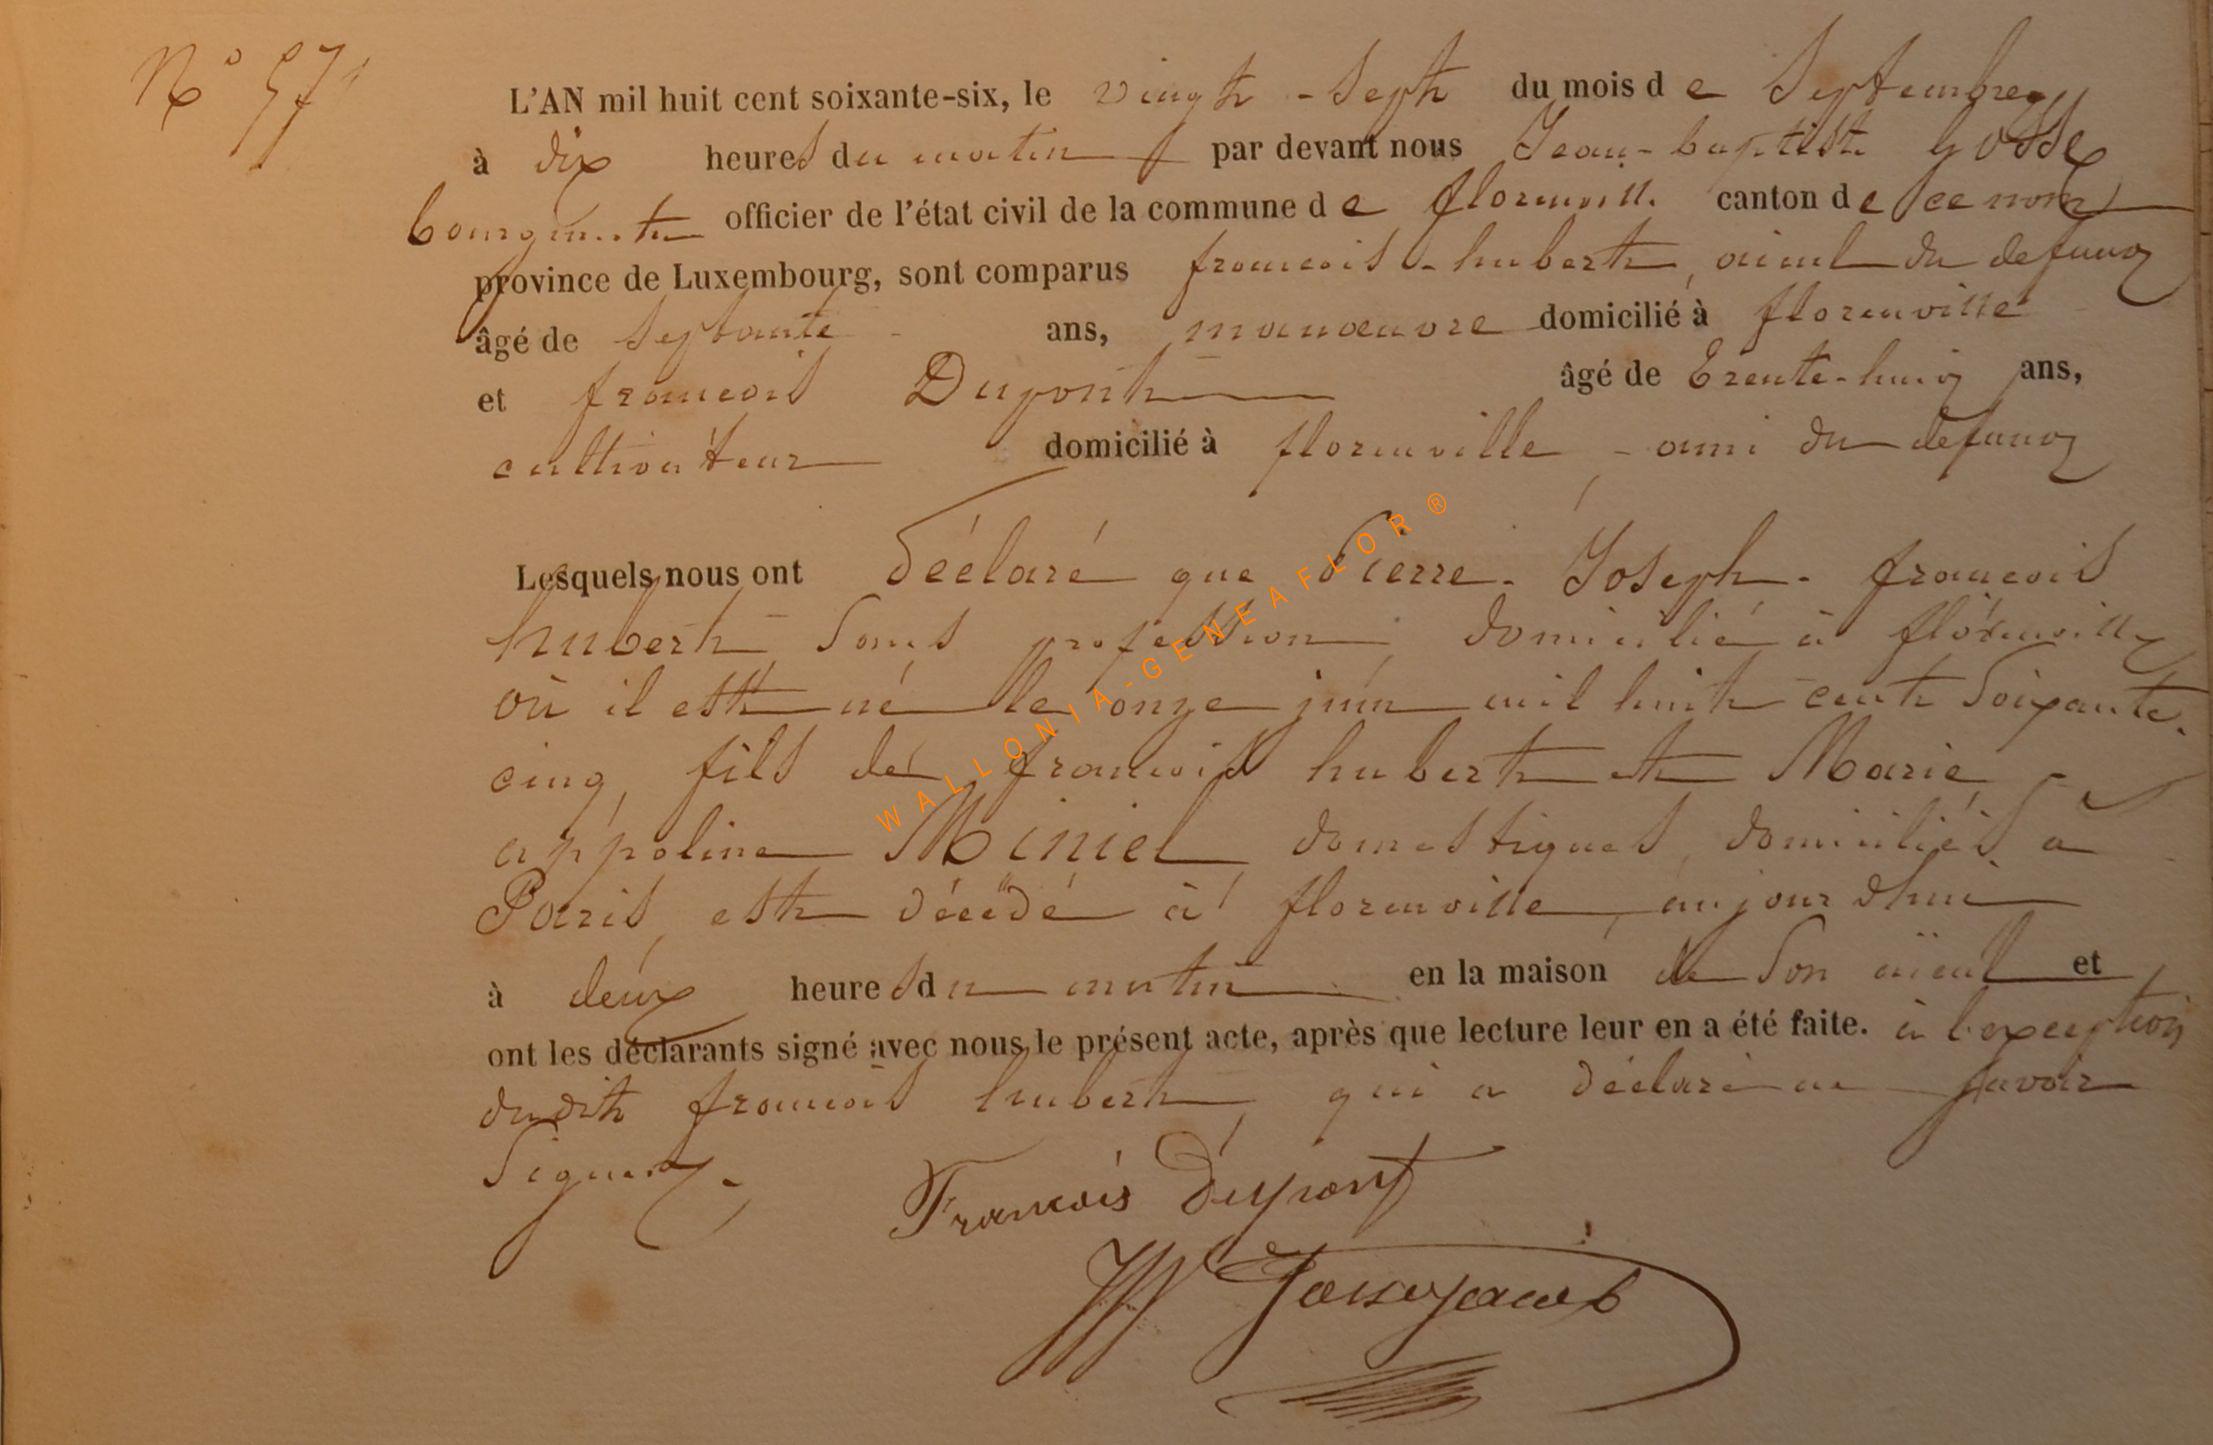 N° 57
L'AN mil huit cent soixante-six, le vingt-sept du mois de Septembre
à dix heures du matin par devant nous Jean-baptiste Gosse
bourgmestre officier de l'état civil de la commune de florenville canton de ce nom
province de Luxembourg, sont comparus francois hubert, aieul du defunt
âgé de septante ans, manœuvre domicilié à florenville
et francois Dupont âgé de trente-huit ans,
cultivateur domicilié à florenville, ami du defunt
Lesquels nous ont déclaré que Pierre-Joseph-francois
hubert, sans profession, domicilié à florenville
où il est né le onze juin mil huit cent soixante-
cinq, fils de francois hubert et Marie
appoline Miniel, domestiques, domiciliés à
Paris, est décédé à florenville, aujourdhui
à deux heures du matin en la maison de son aïeul et
ont les déclarants signé avec nous le présent acte, après que lecture leur en a été faite. à l'exception
dudit francois hubert, qui a déclaré ne savoir
signer.
Francois Dupont
WALLONIA-GENEAFLOR®